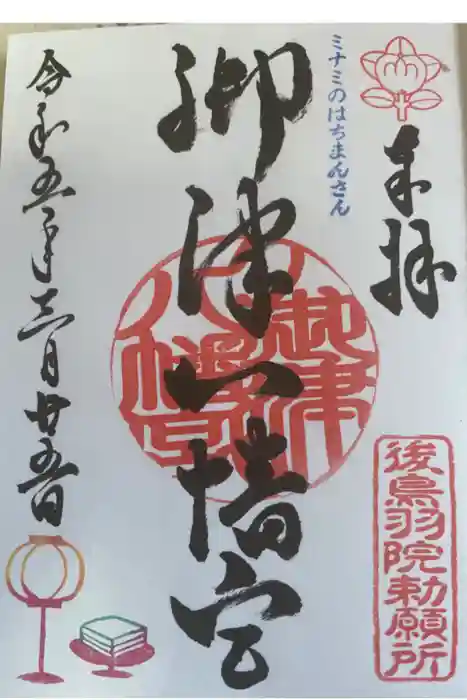 奉拝
ミナミのはちまんさん
御津八幡宮
御津八幡宮
後鳥羽院勅願所
令和五年三月廿五日